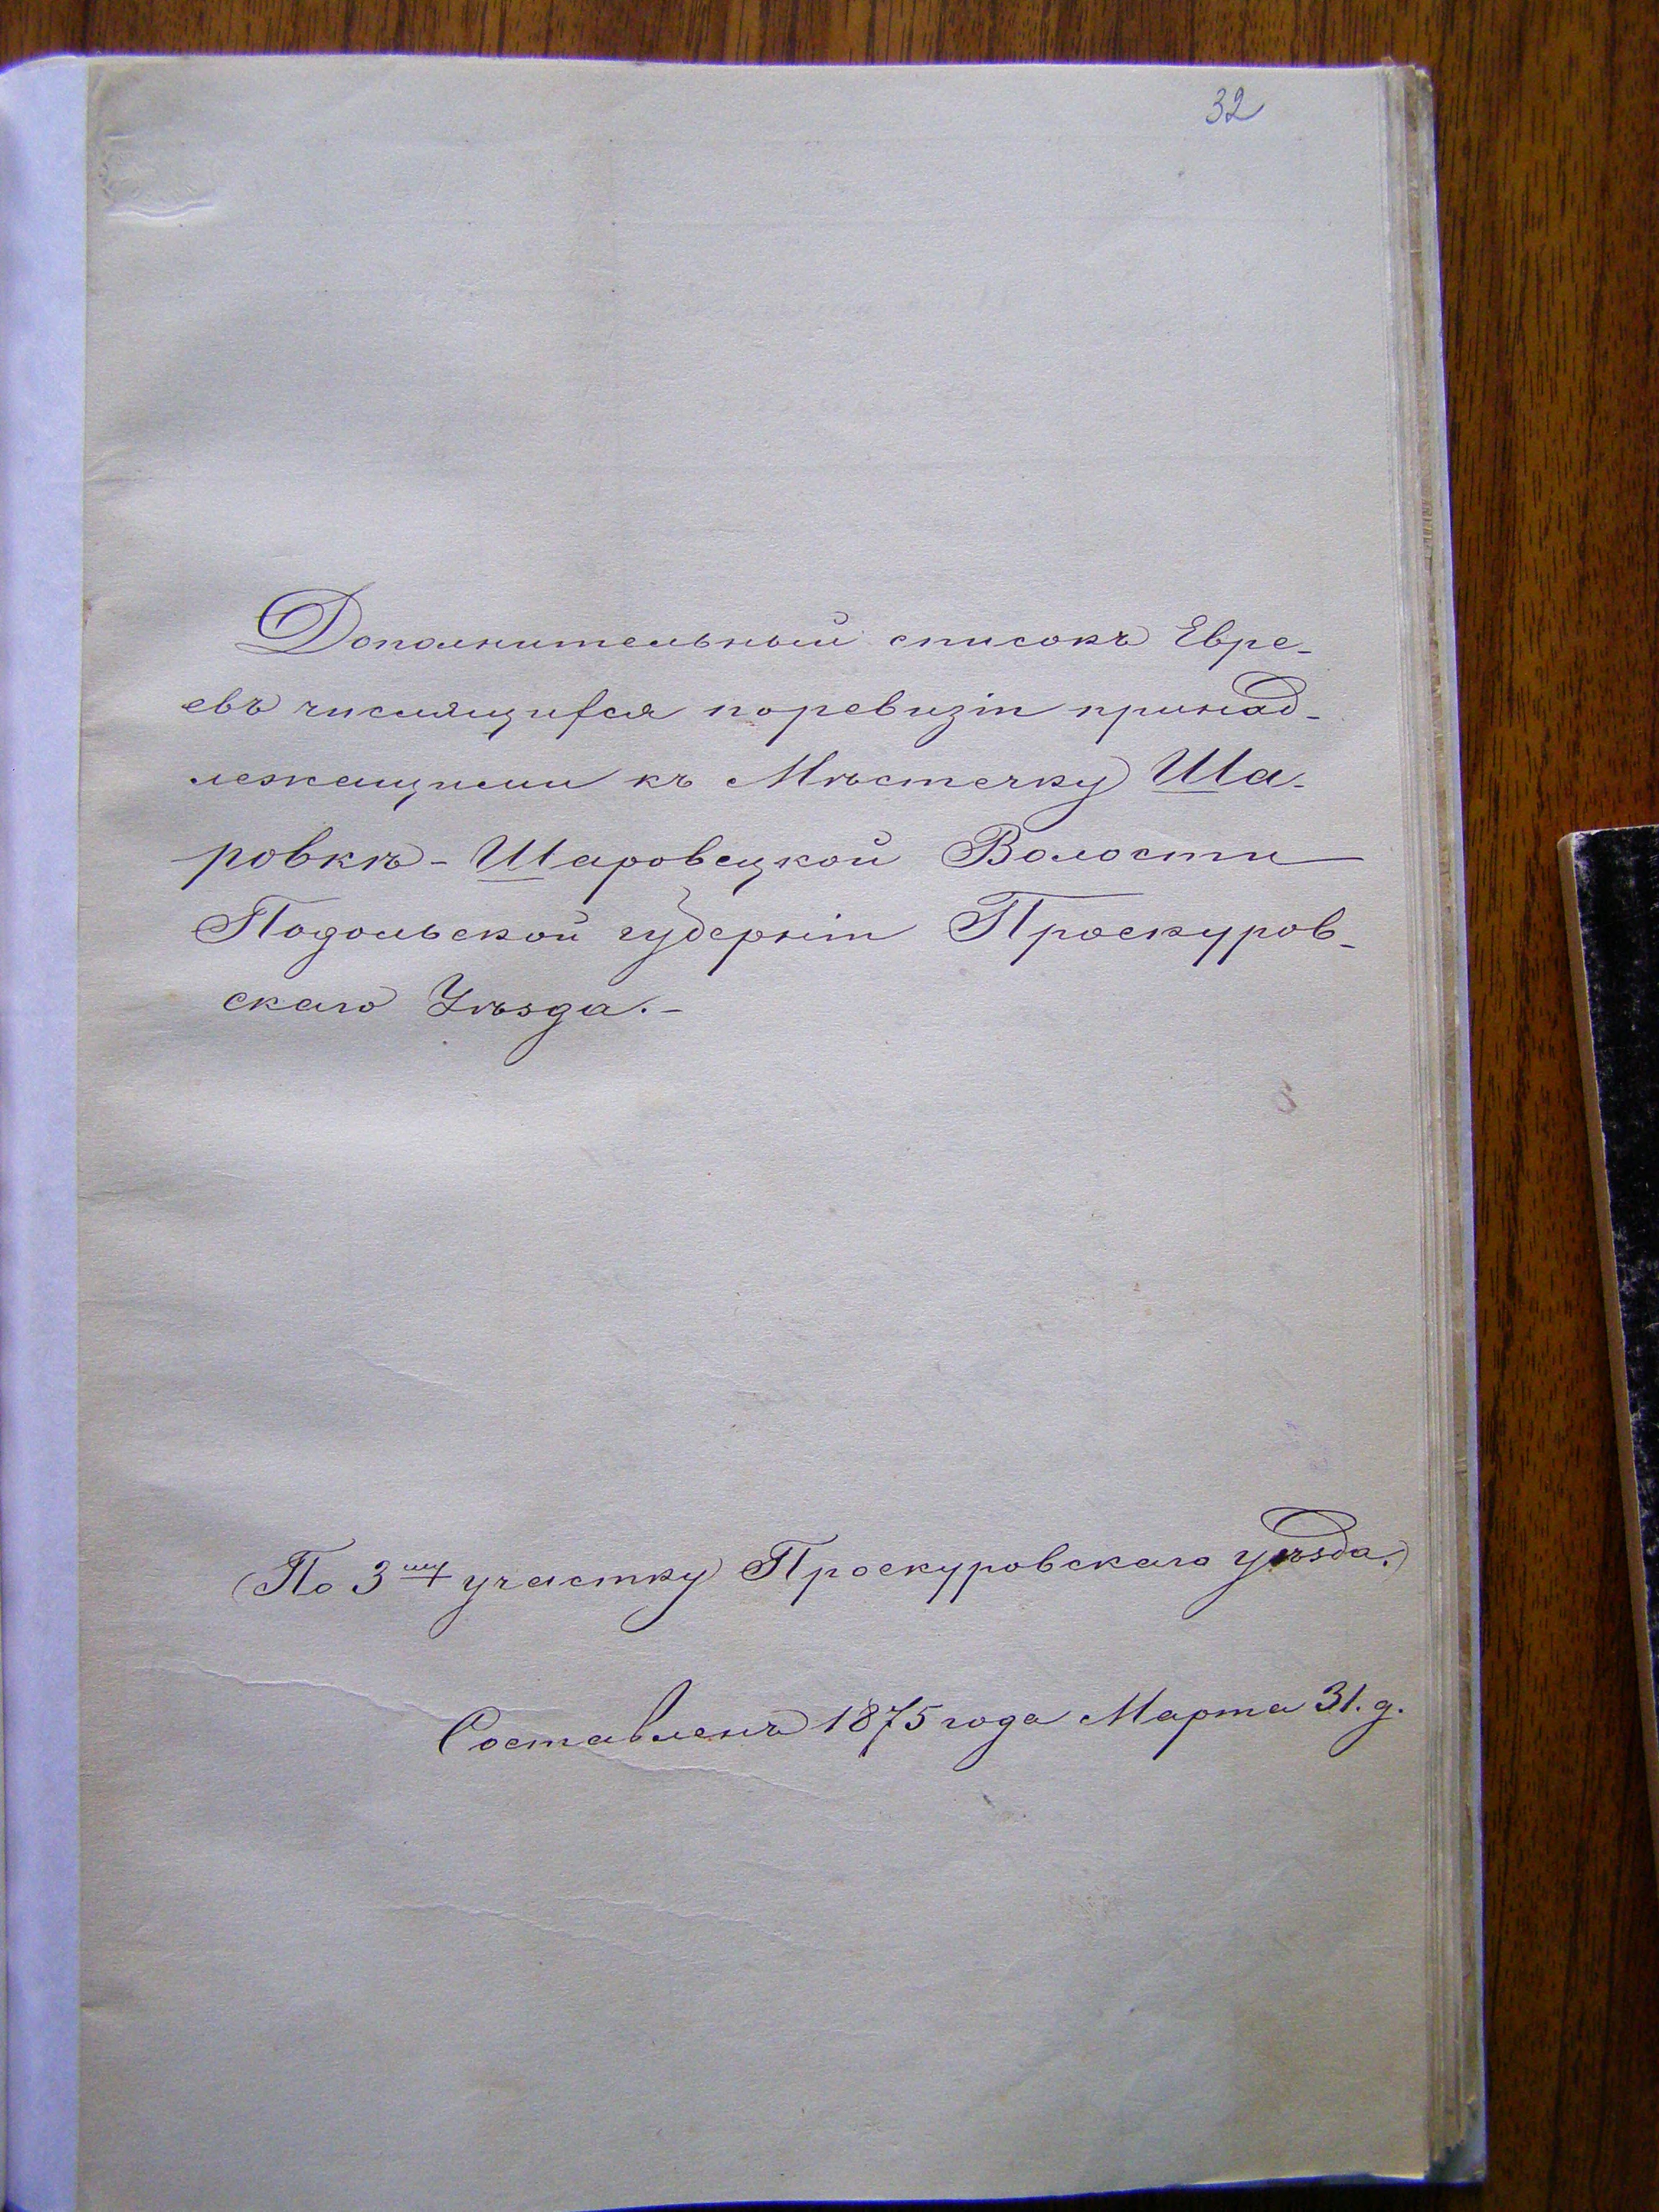 32
Дополнительный списокъ Евре-
евъ числящихся поревизіи принад-
лежащими къ Мѣстечку Ша-
ровкѣ - Шаровецкой Волости
Подольской губерніи Проскуров-
скаго Уѣзда.-
(По 3му участку Проскуровскаго уѣзда.)
Составленъ 1875 года Марта 31. д.